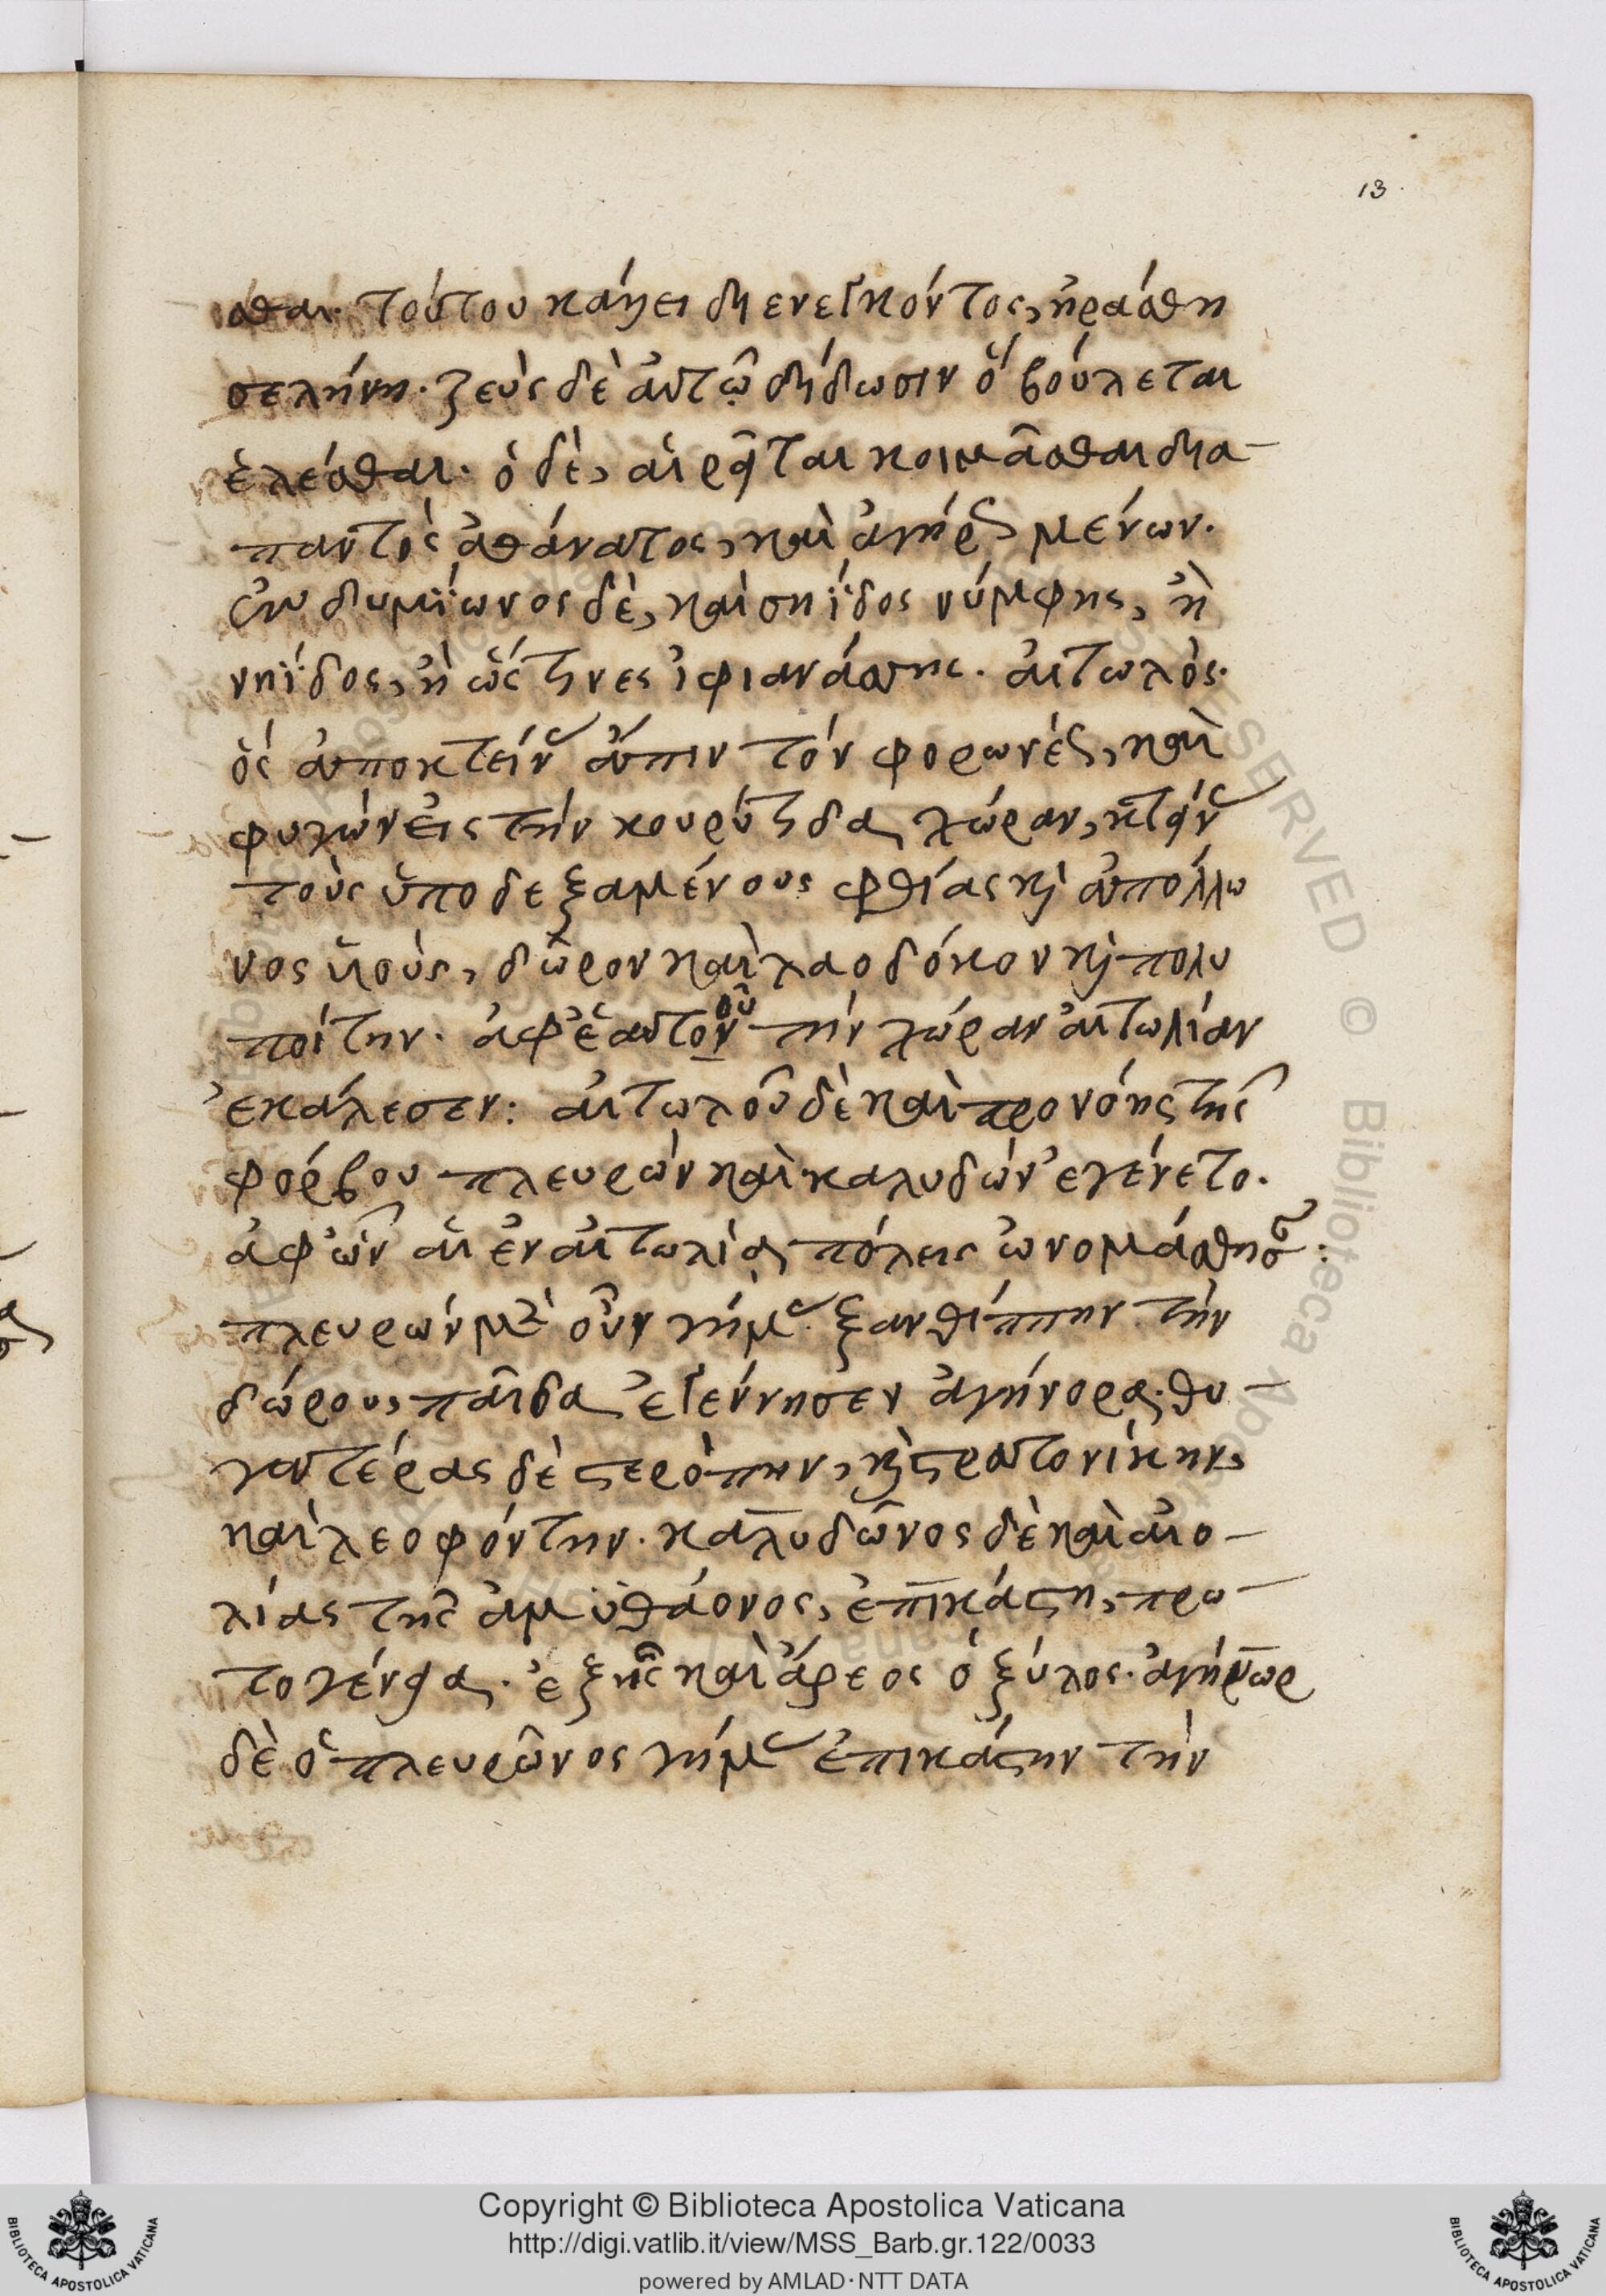 13
σθαι· τούτου κάλλει διενεγκόντος, ἠράσθη
σελήνη· ζεὺς δὲ αὐτῷ δίδωσιν ὃ βούλεται
ἑλέσθαι· ὁ δὲ, αἱρεῖται κοιμᾶσθαι δια-
παντὸς ἀθάνατος, καὶ ἀγήρως μένων·
ἐνδυμίωνος δὲ, καὶ σηΐδος νύμφης, ἢ
νηΐδος, ἢ ὥς τινες ἰφιανάσσης· αἰτωλὸς·
ὃς ἀποκτείνας ἄπιν τὸν φορωνέως, καὶ
φυγὼν εἰς τὴν κουρήτιδα χώραν, κτείνας
τοὺς ὑποδεξαμένους φθίας καὶ ἀπόλλω
νος υἱοὺς, δῶρον καὶ λαοδόκον καὶ πολυ
ποίτην· ἀφ' ἑαυτοῦ τὴν χώραν αἰτωλίαν
ἐκάλεσεν: αἰτωλοῦ δὲ καὶ προνόης τῆς
φόρβου πλευρὼν καὶ καλυδὼν ἐγένετο·
ἀφ' ὧν αἱ ἐν αἰτωλίᾳ πόλεις ὠνομάσθησαν:
πλευρὼν μὲν οὖν γήμας ξανθίππην τὴν
δώρου, παῖδα ἐγέννησεν ἀγήνορα· θυ-
γατέρας δὲ στερόπην, καὶ στρατονίκην,
καὶ λεοφόντην· καλυδῶνος δὲ καὶ αἰο-
λίας τῆς ἀμυθάονος, ἐπικάστη, πρω-
τογένεια· ἐξ ἧς καὶ ἄρεος ὀξύλος· ἀγήνωρ
δὲ ὁ πλευρῶνος γήμας ἐπικάστην τὴν
Copyright © Biblioteca Apostolica Vaticana
http://digi.vatlib.it/view/MSS_Barb.gr.122/0033
powered by AMLAD·NTT DATA
BIBLIOTECA APOSTOLICA VATICANA
BIBLIOTECA APOSTOLICA VATICANA